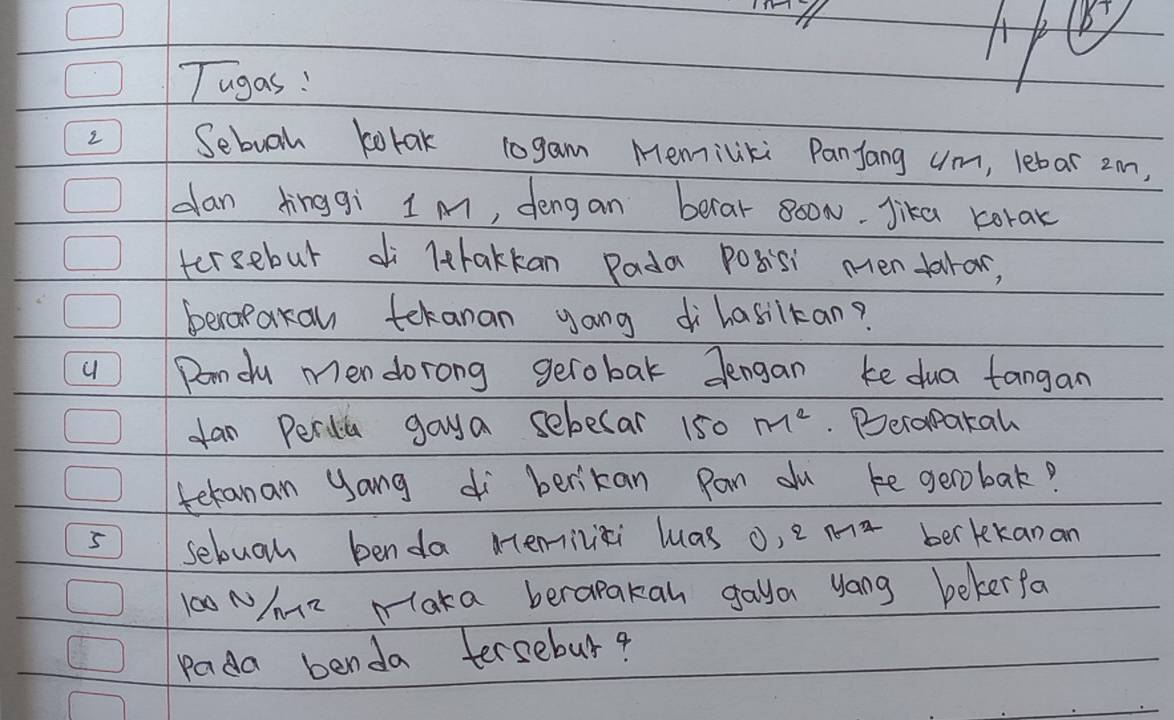 Tugas:
2 Sebuah kotak logam Memiliki Panjang 4m, lebar 2m,
dan tinggi 1 M, dengan berat 800N. Jika kotak
tersebut di letakkan Pada Posisi Mendatar,
berapakah tekanan yang di hasilkan?
4 Pandu Mendorong gerobak dengan kedua tangan
dan Perlu gaya sebesar 150 m². Berapakah
tekanan yang di berikan Pandu ke gerobak?
5 sebuah benda Memiliki luas 0,2 m² bertekanan
100 N/m² Maka berapakah gaya yang bekerja
Pada benda tersebut?